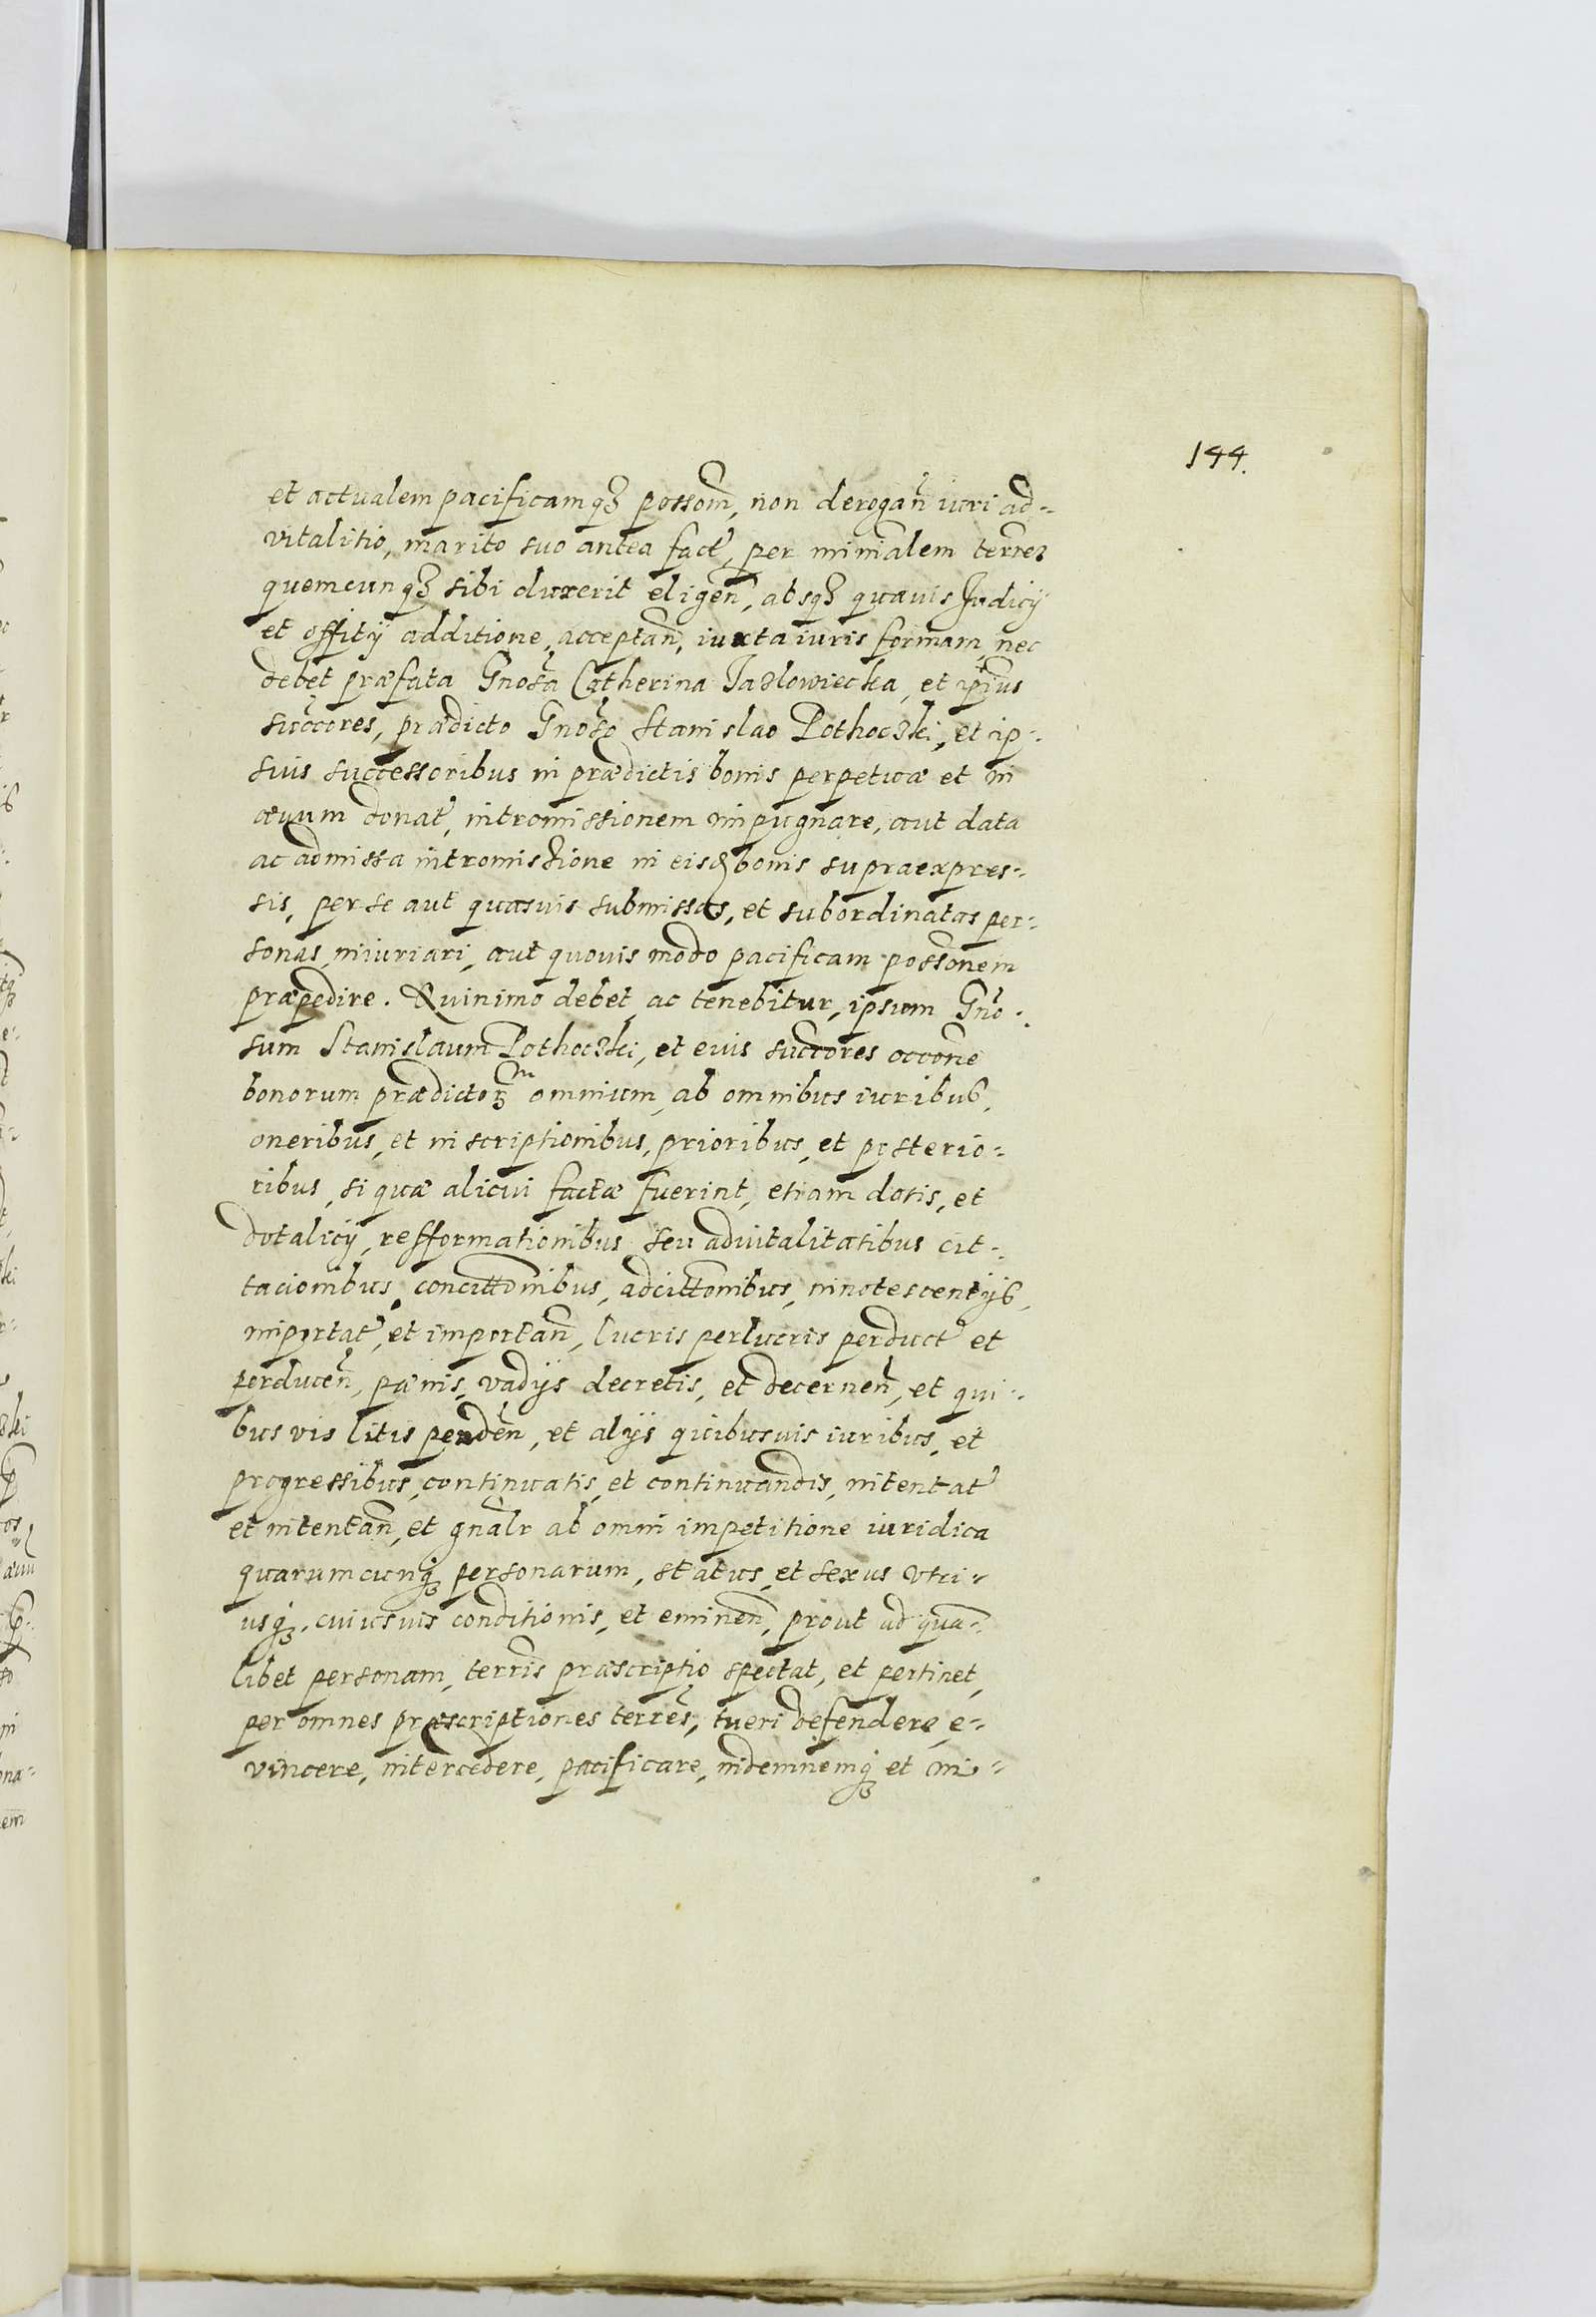 144.
et actualem pacificamqꝫ possom̃, non derogan̄ iuri ad-
vitalitio, marito suo antea fact̓, per minĩalem terrẽ
quemcunqꝫ sibi duxerit eligen̄, absqꝫ quavis Judicij
et offitij additione, acceptan̄, iuxta iuris formam nec
debet præfata Gnosa Catherina Jazlowiecka, et ipius
succores, prædicto Gnoso Stanislao Pothoczki, et ip-
suis successoribus in prædictis bonis perpetuæ et in
ævum donat̓, intromissionem impugnare, aut data
ac admissa intromissione in eisd bonis supraexpres-
sis, per se aut quasvis submissas, et subordinatas per-
sonas, iniuriari, aut quovis modo pacificam possonem
præpedire. Quinimo debet ac tenebitur, ipsum Gno-
sum Stanislaum Pothoczki, et euis succores occone
bonorum prædictoꝝ omnium, ab omnibus iuribus,
oneribus, et inscriptionibus, prioribus, et posterio-
ribus, si quæ alicui factæ fuerint, etiam dotis, et
dotalicij, refformationibus seu advitalitatibus cit-
tacionibus, concittonibus, adcittonibus, innotescentijs,
importat̓, et importan̄, lucris perlucris perduct̓ et
perducen̄, pænis, vadijs decretis, et decernen̄, et qui-
busvis litis penden̄, et alijs quibusvis iuribus, et
progressibus, continuatis, et continuandis, intentat̓
et intentan̄, et gnalr ab omni impetitione iuridica
quarumcunqꝫ personarum, status, et sexus utri-
usqꝫ, cuiusvis conditionis, et eminen̄, prout ad quam-
libet personam, terris præscriptio spectat, et pertinet,
per omnes præscriptiones terres, tueri defendere, e-
vincere, intercedere, pacificare, indemnemqꝫ et in-